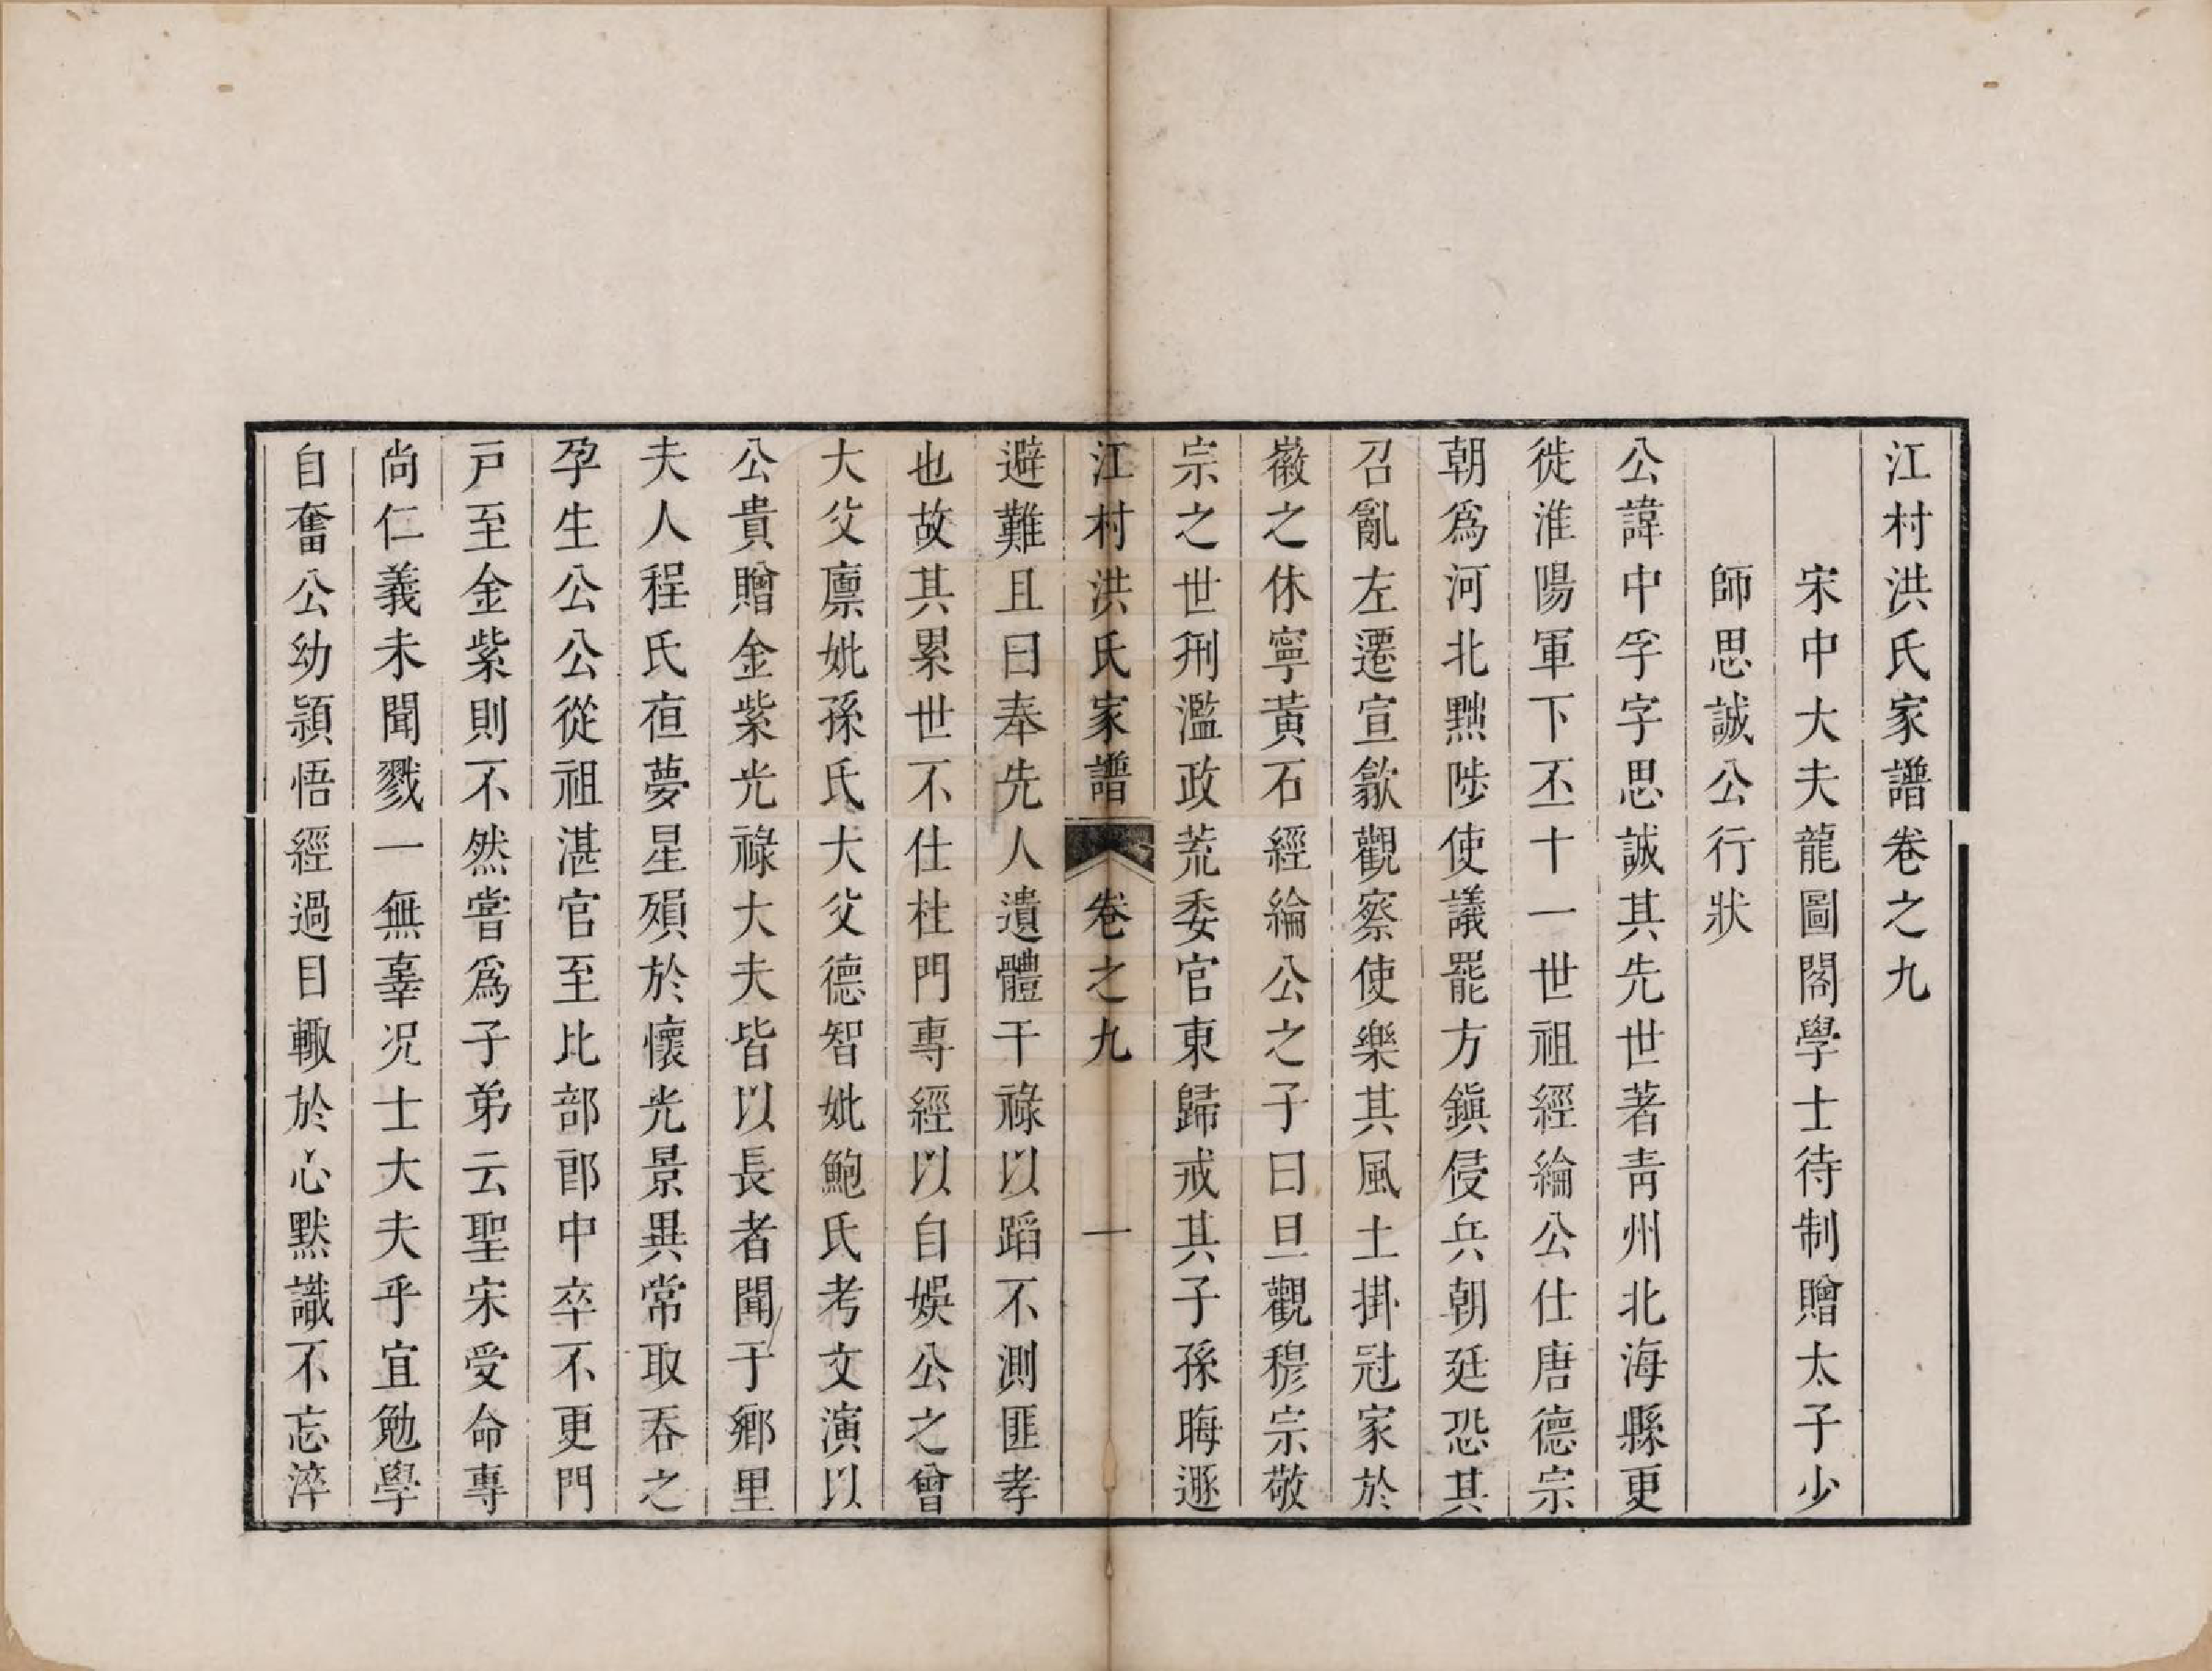 江村洪氏家譜卷之九
宋中大夫龍圖閣學士待制贈太子少
師思誠公行狀
公諱中孚字思誠其先世著靑州北海縣更
徙淮陽軍下丕十一世祖經綸公仕唐德宗
朝爲河北黜陟使議罷方鎭侵兵朝廷恐其
召亂左遷宣歙觀察使樂其風土掛冠家於
徽之休寧黃石經綸公之子曰旦觀穆宗敬
宗之世刑濫政荒委官東歸戒其子孫晦遯
江村洪氏家譜 卷之九 一
避難且曰奉先人遺體干祿以蹈不測匪孝
也故其累世不仕杜門專經以自娛公之曾
大父廪妣孫氏大父德智妣鮑氏考文演以
公貴贈金紫光祿大夫皆以長者聞于鄉里
夫人程氏夜夢星殞於懷光景異常取吞之
孕生公公從祖湛官至比部郎中卒不更門
戸至金紫則不然嘗爲子弟云聖宋受命專
尚仁義未聞戮一無辜况士大夫乎宜勉學
自奮公幼穎悟經過目輙於心默識不忘淬